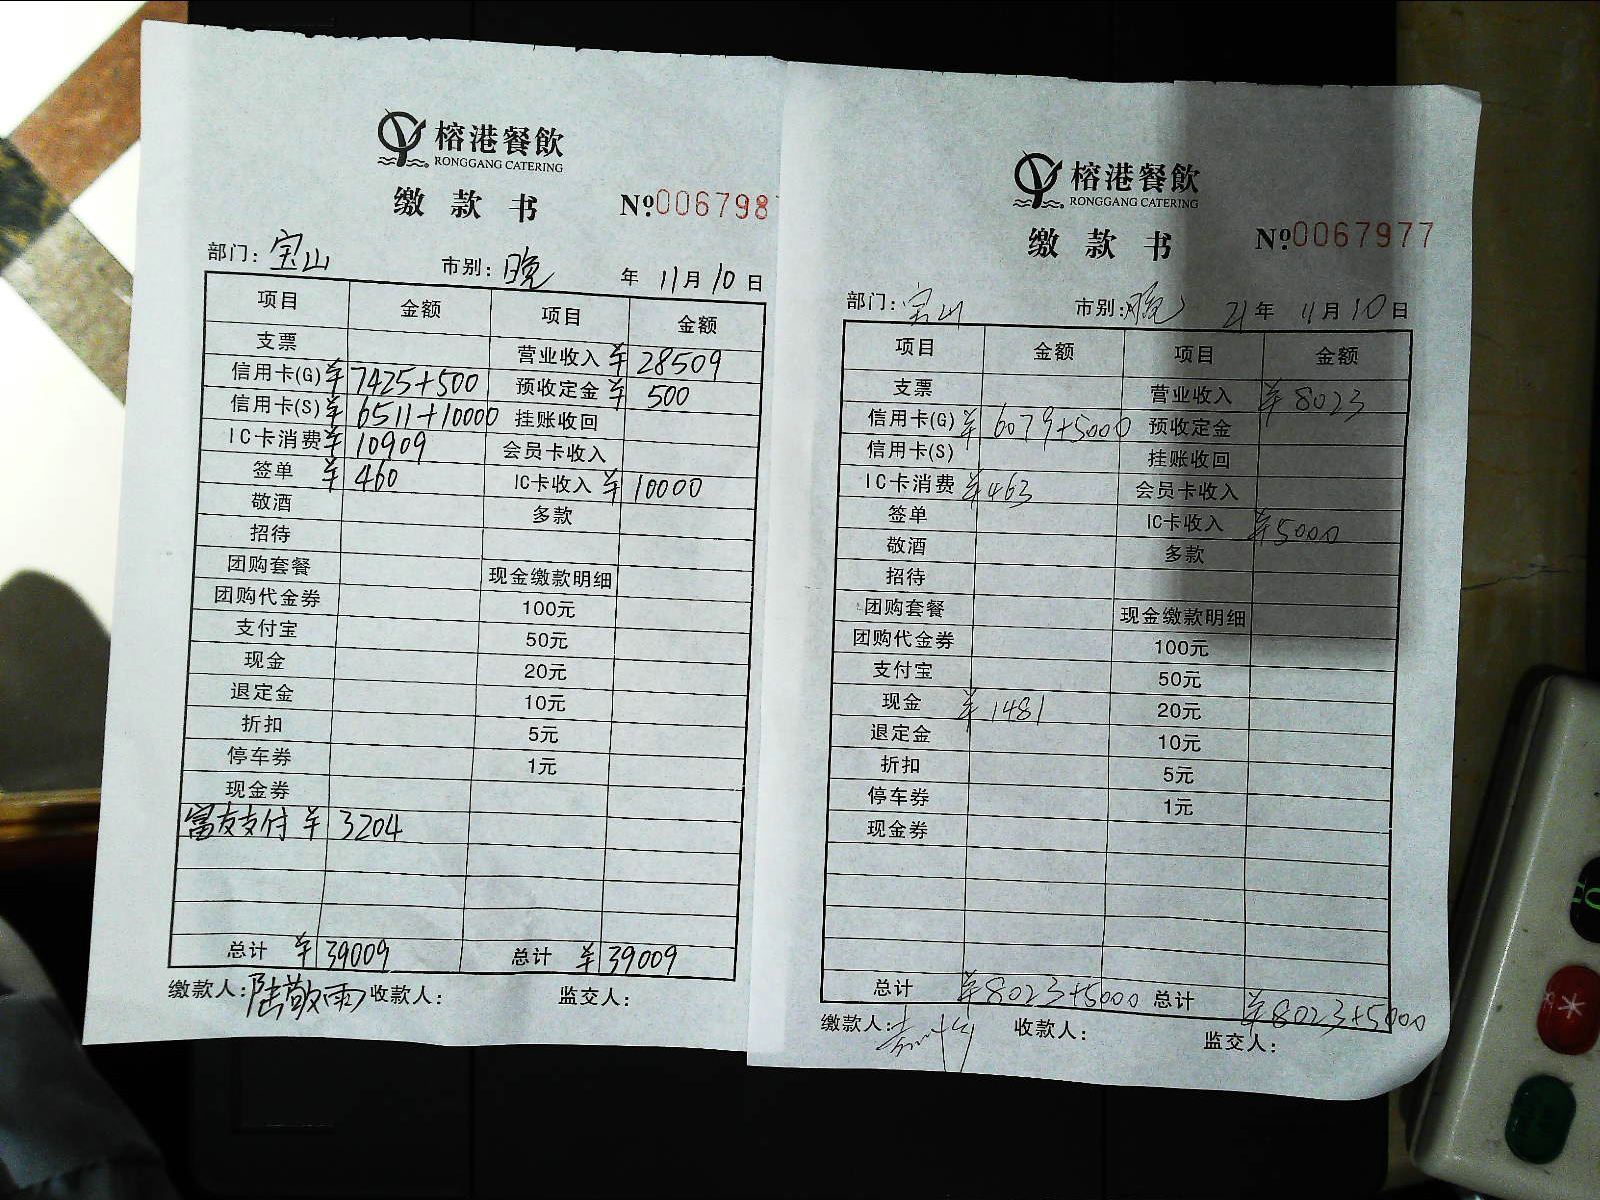 榕港餐飲
RONGGANG CATERING
缴款书 №006798
部门:宝山 市别:晚 年 11月10日
项目 金额 项目 金额
支票 营业收入 ¥28509
信用卡(G) ¥7425+500 预收定金 ¥500
信用卡(S) ¥6511+10000 挂账收回
IC卡消费 ¥10909 会员卡收入
签单 ¥460 IC卡收入 ¥10000
敬酒 多款
招待
团购套餐 现金缴款明细
团购代金券 100元
支付宝 50元
现金 20元
退定金 10元
折扣 5元
停车券 1元
现金券
富友支付 ¥3204
总计 ¥39009 总计 ¥39009
缴款人:陆敬雨 收款人: 监交人:
榕港餐飲
RONGGANG CATERING
缴款书 №0067977
部门:宝山 市别:晚 21年 11月10日
项目 金额 项目 金额
支票 营业收入 ¥8023
信用卡(G) ¥6079+5000 预收定金
信用卡(S) 挂账收回
IC卡消费 ¥463 会员卡收入
签单 IC卡收入 ¥5000
敬酒 多款
招待
团购套餐 现金缴款明细
团购代金券 100元
支付宝 50元
现金 ¥1481 20元
退定金 10元
折扣 5元
停车券 1元
现金券
总计 ¥8023+5000 总计 ¥8023+5000
缴款人: 收款人: 监交人: